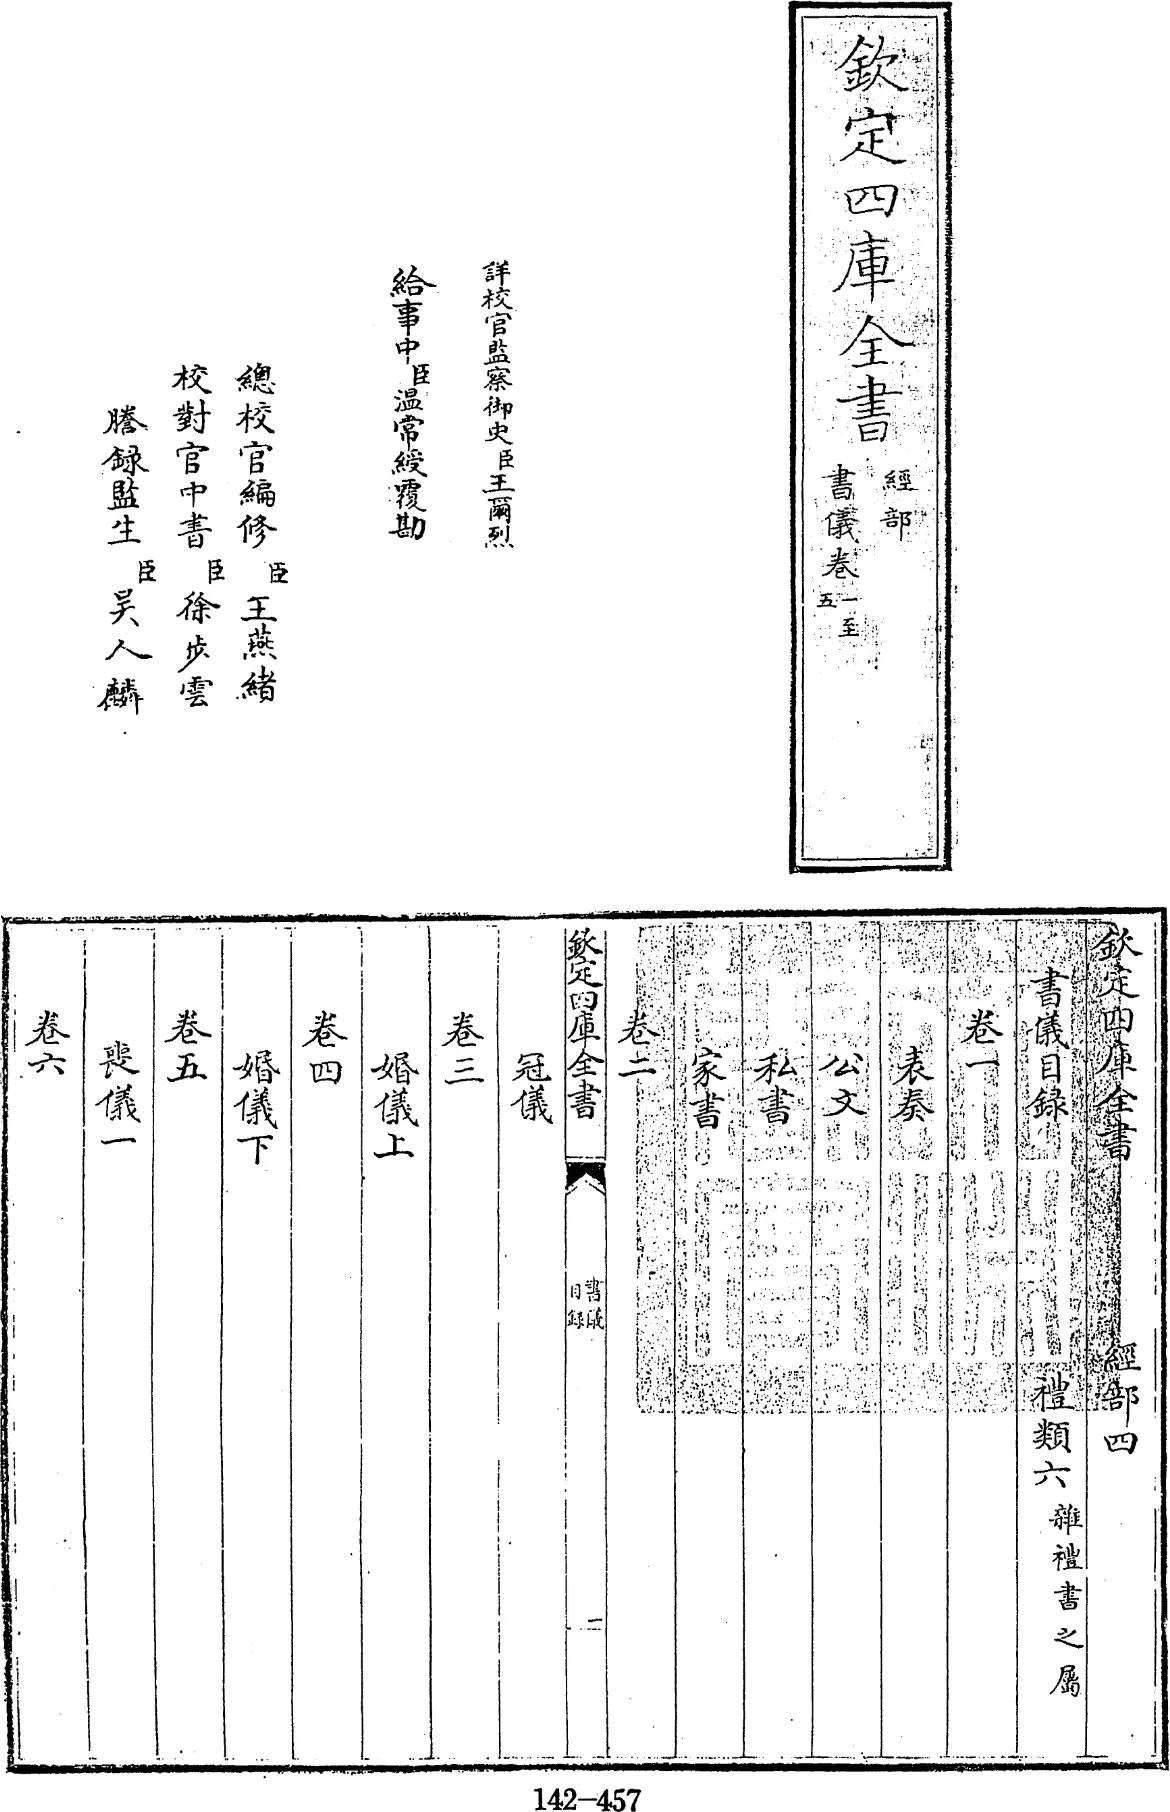 欽定四庫全書
經部
書儀卷一至五
詳校官監察御史臣王爾烈
給事中臣溫常綬覆勘
總校官編修臣王燕緒
校對官中書臣徐步雲
謄録監生臣吴人麟
欽定四庫全書 經部四
書儀目録 禮類六 雜禮書之屬
卷一
表奏
公文
私書
家書
卷二
欽定四庫全書
書儀
目録
一
冠儀
卷三
婚儀上
卷四
婚儀下
卷五
喪儀一
卷六
142-457